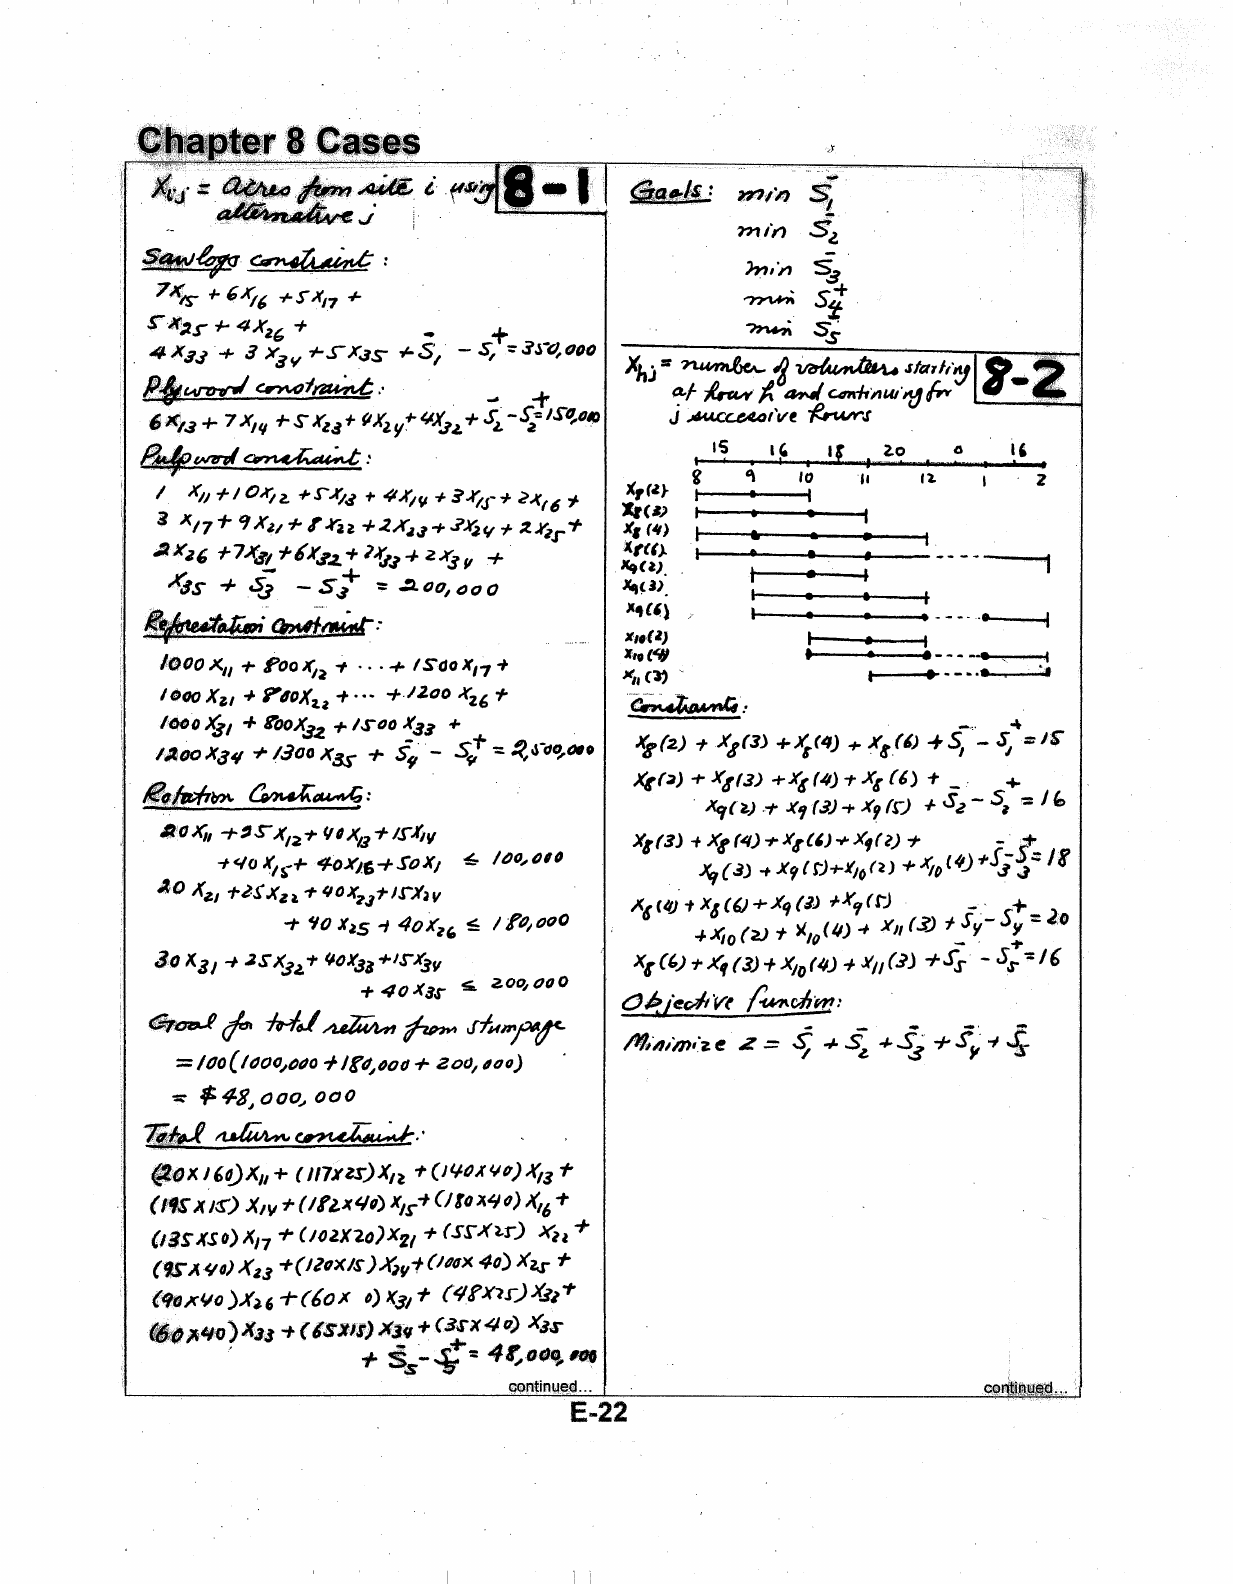 Chapter 8 Cases
Xij = acres from site i using
alternative j
8-1
Sawlogs constraint :
7X15 + 6X16 + 5X17 +
5X25 + 4X26 +
4X33 + 3X34 + 5X35 + S1- - S1+ = 350,000
Plywood constraint :
6X13 + 7X14 + 5X23 + 4X24 + 4X32 + S2- - S2+ = 150,000
Pulpwood constraint :
1 X11 + 10X12 + 5X13 + 4X14 + 3X15 + 2X16 +
3 X17 + 9X21 + 8X22 + 2X23 + 3X24 + 2X25 +
2X26 + 7X31 + 6X32 + 2X33 + 2X34 +
X35 + S3- - S3+ = 200,000
Reforestation Constraint :
1000 X11 + 800X12 + ... + 1500 X17 +
1000 X21 + 800X22 + ... + 1200 X26 +
1000 X31 + 800X32 + 1500 X33 +
1200X34 + 1300 X35 + S4- - S4+ = 2,500,000
Rotation Constraints :
20X11 + 25X12 + 40X13 + 15X14
+ 40X15 + 40X16 + 50X1 ≤ 100,000
20 X21 + 25X22 + 40X23 + 15X24
+ 40 X25 + 40X26 ≤ 180,000
30X31 + 25X32 + 40X33 + 15X34
+ 40X35 ≤ 200,000
Goal for total return from stumpage
= 100(1000,000 + 180,000 + 200,000)
= $48,000,000
Total return constraint :
(20X160)X11 + (117X25)X12 + (140X40)X13 +
(195X15) X14 + (182X40)X15 + (180X40)X16 +
(135X50)X17 + (102X20)X21 + (55X25) X22 +
(95X40)X23 + (120X15)X24 + (100X 40)X25 +
(90X40)X26 + (60X 0)X31 + (48X25)X32 +
(60X40)X33 + (65X15)X34 + (35X40) X35
+ S5- - S5+ = 48,000,000
continued...
Goals : min S1-
min S2-
min S3-
min S4+
min S5-
Xhj = number of volunteers starting
at hour h and continuing for
j successive hours
8-2
15 16 18 20 0 16
8 9 10 11 12 1 2
X8(2)
X8(3)
X8(4)
X8(6)
X9(2)
X9(3)
X9(6)
X10(2)
X10(4)
X11(3)
Constraints :
X8(2) + X8(3) + X8(4) + X8(6) + S1- - S1+ = 15
X8(2) + X8(3) + X8(4) + X8(6) +
X9(2) + X9(3) + X9(5) + S2- - S2+ = 16
X8(3) + X8(4) + X8(6) + X9(2) +
X9(3) + X9(5) + X10(2) + X10(4) + S3- - S3+ = 18
X8(4) + X8(6) + X9(3) + X9(5)
+ X10(2) + X10(4) + X11(3) + S4- - S4+ = 20
X8(6) + X9(3) + X10(4) + X11(3) + S5- - S5+ = 16
Objective function:
Minimize z = S1- + S2- + S3- + S4- + S5-
continued...
E-22